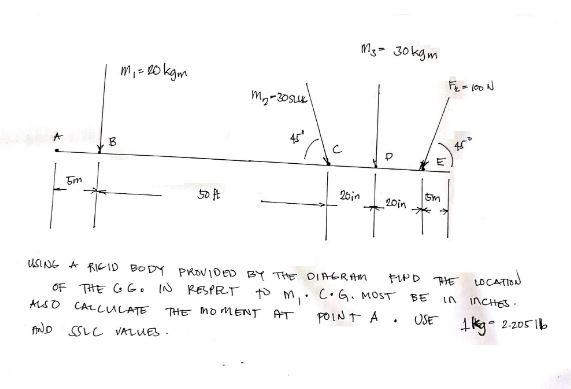 M3 = 30 kgm
M1 = 20 kgm
FE = 100 N
M2 = 30 SLUG
45°
45°
A
B
C
D
E
5m
50 ft
20in
20in
5m
USING A RIGID BODY PROVIDED BY THE DIAGRAM FIND THE LOCATION
OF THE C.G. IN RESPECT TO M1. C.G. MOST BE IN INCHES.
ALSO CALCULATE THE MOMENT AT POINT A. USE 1kg = 2.205 lb
AND SSLC VALUES.